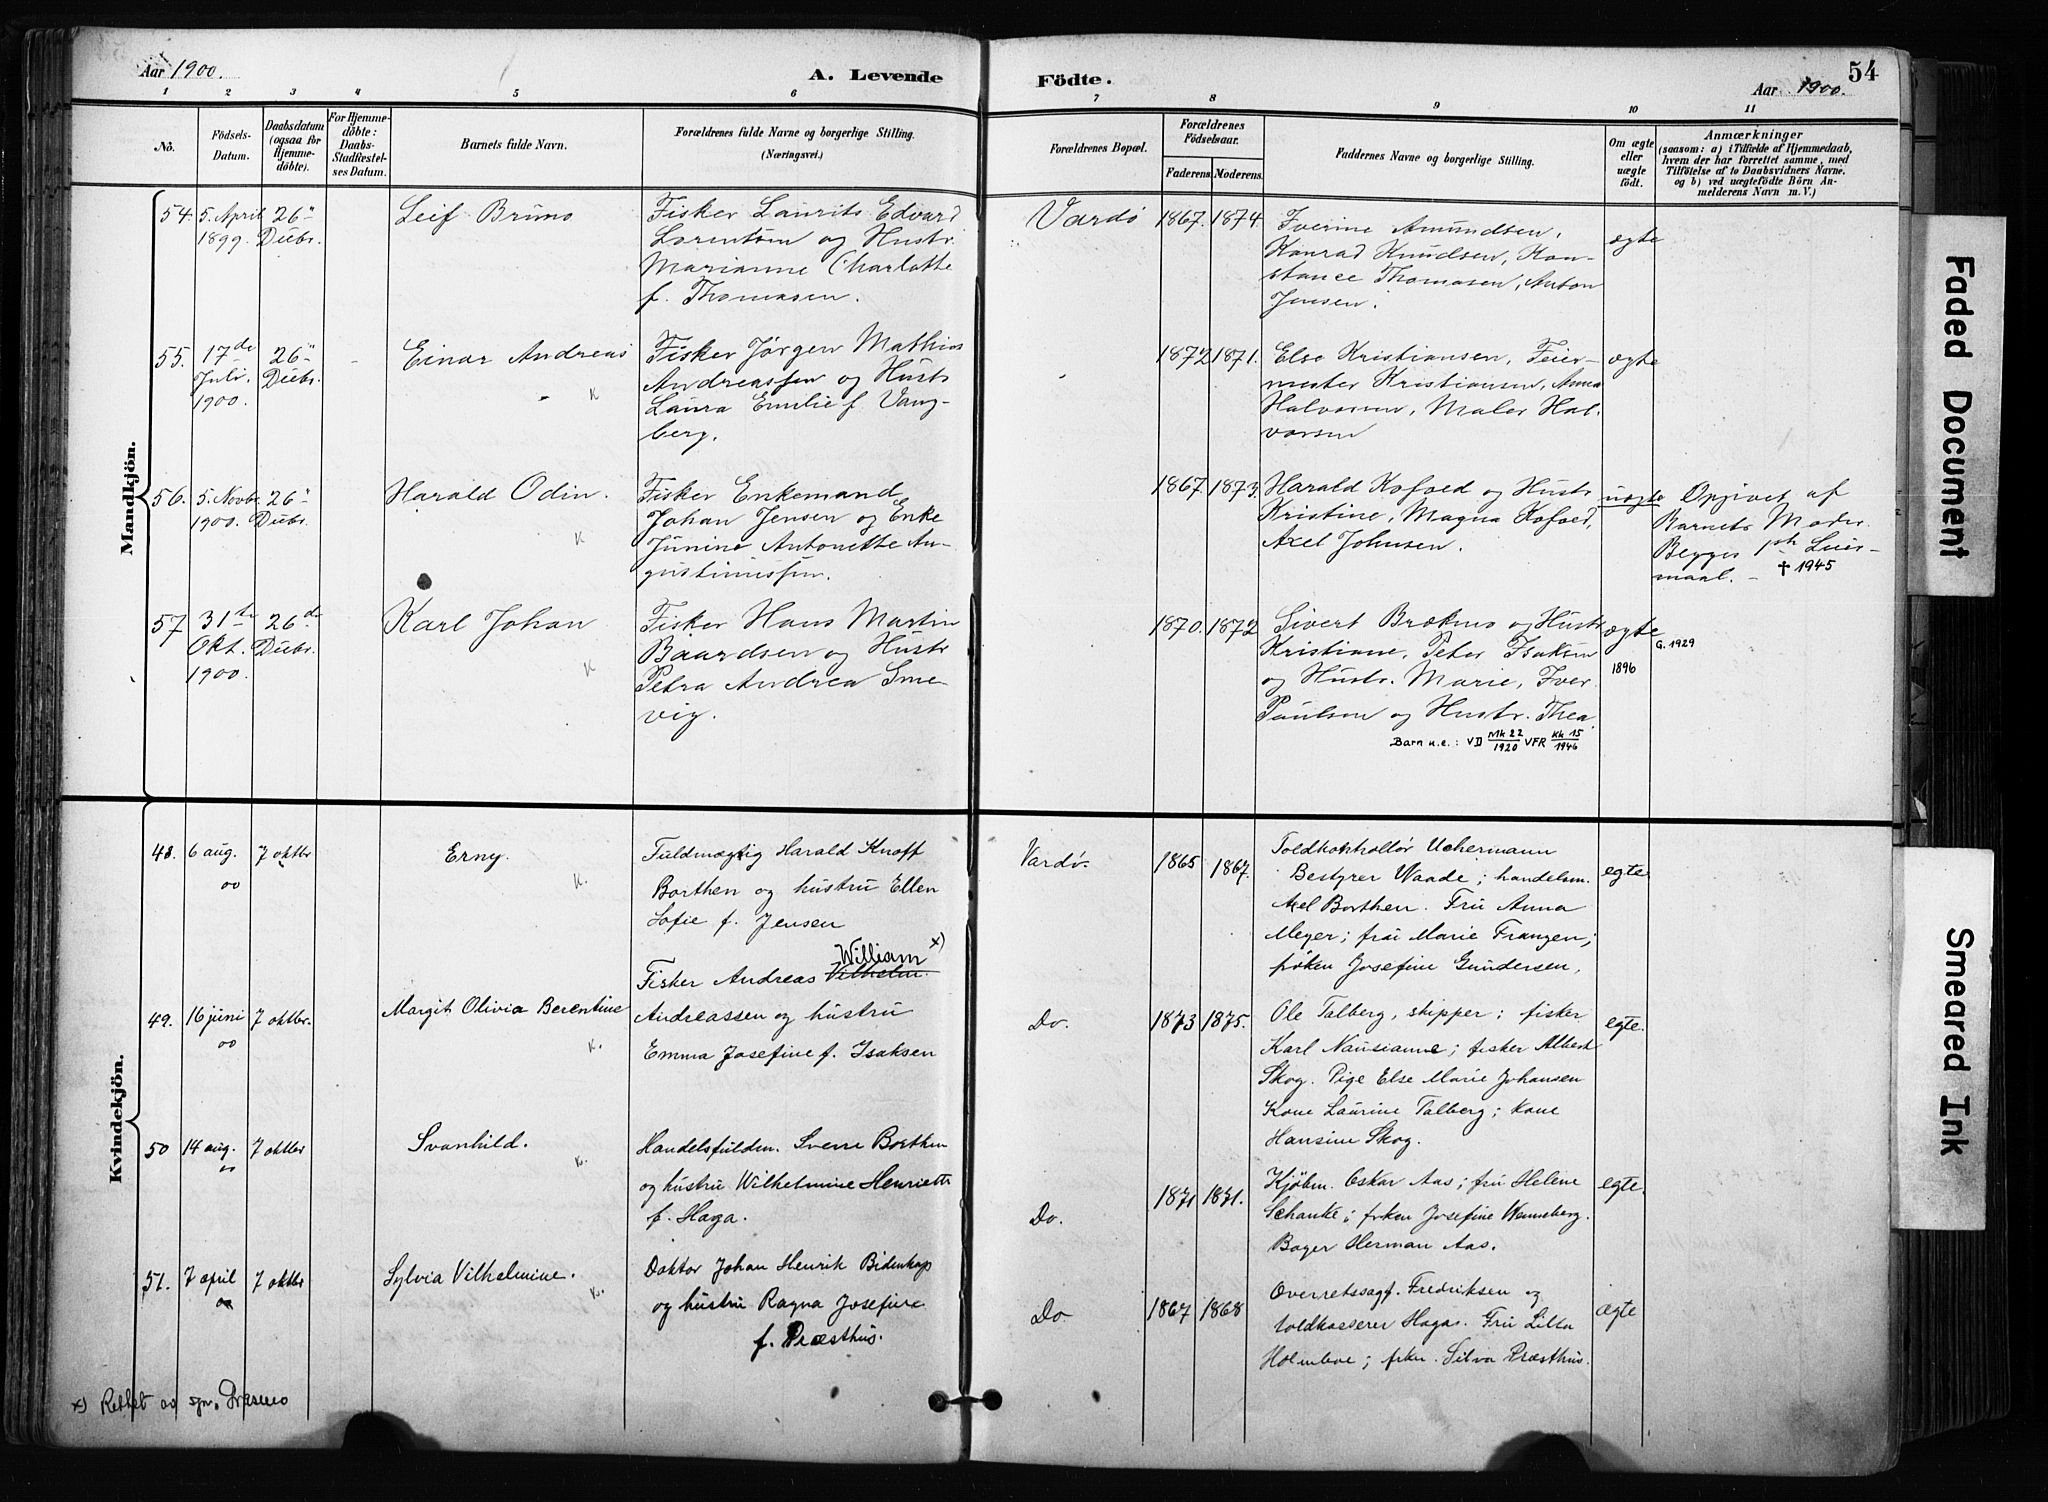 Aar 1900.
A. Levende
Födte.
Aar 1900.
54
1 2 3 4 5 6 7 8 9 10 11
No.
Födsels-
Datum.
Daabsdatum
(ogsaa for
Hjemme-
döbte).
For Hjemme-
döbte:
Daabs-
Stadfæstel-
ses Datum.
Barnets fulde Navn.
Forældrenes fulde Navne og borgerlige Stilling.
(Næringsvei.)
Forældrenes Bopæl.
Forældrenes
Födselsaar.
Faderens. Moderens.
Faddernes Navne og borgerlige Stilling.
Om ægte
eller
uægte
födt.
Anmærkninger
(saasom: a) i Tilfælde af Hjemmedaab,
hvem der har forrettet samme, med
Tilföielse af to Daabsvidners Navne.
og b) ved uægtefödte Börn An-
melderens Navn m. V.)
Mandkjön.
54. 5. April
1899.
26"
Dcbr.
Leif Bruno
Fisker Laurits Edvard
Lorentsen og Hustr.
Marianne Charlotte
f. Thomasen.
Vardö
1867. 1874.
Iverine Amundsen,
Konrad Knudsen, Kon-
stance Thomasen, Anton
Jensen.
ægte
55. 17de
Juli.
1900.
26"
Dcbr.
Einar Andreas
K
Fisker Jørgen Mathias
Andreassen og Hustr
Laura Emilie f. Vang-
berg.
1872 1871.
Else Kristiansen, Feier-
mester Kristiansen, Anna
Halvorsen, Maler Hal-
vorsen
ægte
56. 5. Novbr.
1900.
26"
Dcbr.
Harald Odin.
K
Fisker Enkemand
Johan Jensen og Enke
Junine Antonette Au-
gustinussen.
1867. 1873.
Harald Kofoed og Hustr
Kristine, Magna Kofoed,
Axel Johnsen.
uægte
Opgivet af
Barnets Moder.
Begges 1ste Leier-
maal. – † 1945
57 31te
Okt.
1900.
26de
Dcbr.
Karl Johan
K
Fisker Hans Martin
Baardsen og Hustr
Petra Andrea Sme-
vig.
1870. 1872
Sivert Brækmo og Hustr
Kristiane, Peter Isaksen
og Hustr. Marie, Iver
Paulsen og Hustr. Thea.
ægte
1896
G. 1929
Barn u.e.: VD Mk 22/1920 VFR Kk 15/1946
Kvindekjön.
48. 6 aug.
00
7 oktbr
Erny.
K.
Fuldmægtig Harald Knoff
Borthen og hustru Ellen
Sofie f. Jensen
Vardö.
1865 1867.
Toldkontrollør Uchermann
Bestyrer Waade; handelsm.
Axel Borthen. Fru Anna
Meyer; fru Marie Franzen;
frøken Josefine Gundersen,
egte
49. 16 juni
00
7 oktbr.
Margit Olivia Berentine
K.
William x)
Fisker Andreas Vilhelm
Andreassen og hustru
Emma Josefine f. Isaksen
Do.
1873 1875.
Ole Talberg, skipper; fisker
Karl Nausianne; fisker Albert
Skog. Pige Else Marie Johansen
Kone Laurine Talberg; kone
Hansine Skog.
egte.
50 14 aug.
00
7 oktbr
Svanhild.
K.
Handelsfuldm. Sverre Borthen
og hustru Wilhelmine Henriette
f. Haga.
Do.
1871 1871.
Kjöbm. Oskar Aas; fru Helene
Schanke; frken Josefine Wenneberg.
Bager Herman Aas.
egte.
51. 7 april
00
7 oktbr
Sylvia Vilhelmine.
K.
Doktor Johan Henrik Bidenkap
og hustru Ragna Josefine
f. Præsthus.
Do.
1867 1868
Overretssagf. Fredriksen og
toldkasserer Hagas. Fru Lilla
Holmboe; frkn. Silva Præsthus.
ægte
x) Rettet av spr.
Faded Document
Smeared Ink